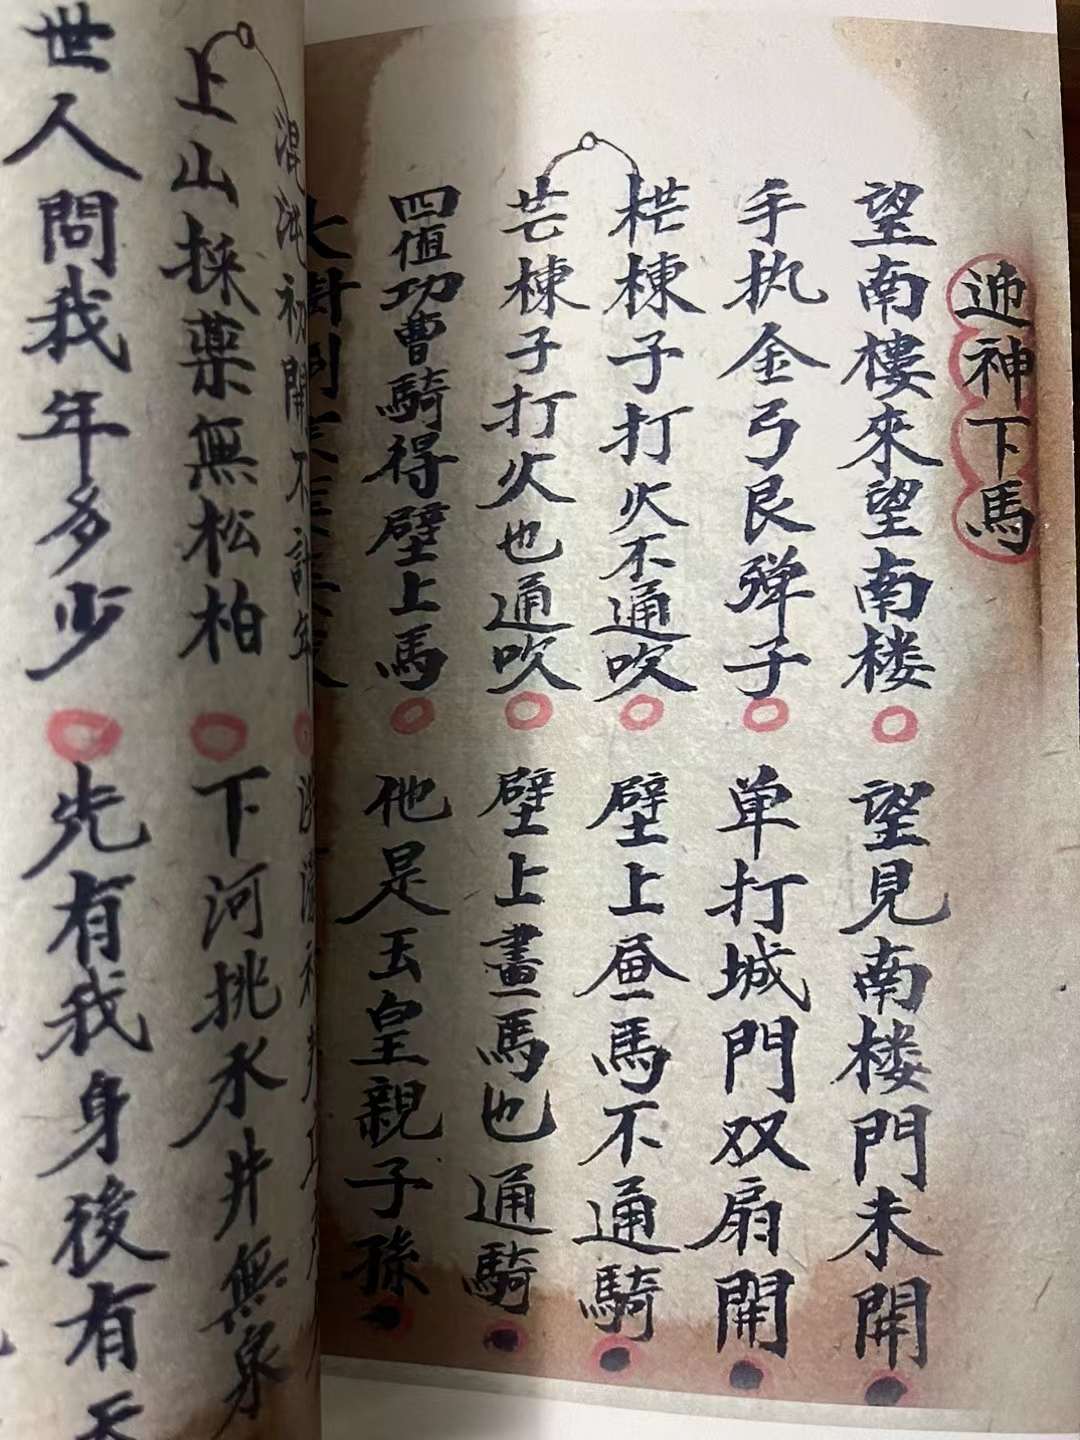 迊神下馬
望南樓來望南楼○望見南楼門未開
手执金弓艮弹子○单打城門双扇開
棟子打火不通吹○壁上昼馬不通騎
芒棟子打火也通吹○壁上畫馬也通騎
四值功曹騎得壁上馬○他是玉皇親子孫
混沌初開不計年
上山採藥無松柏○下河挑水井無泉
世人問我年多少○先有我身後有天